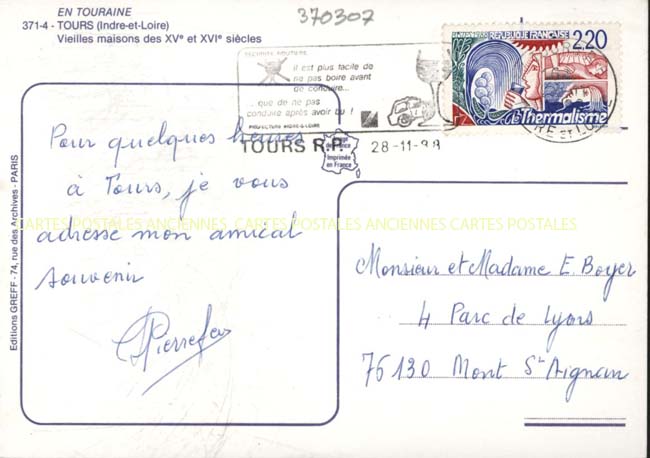 EN TOURAINE
371-4 - TOURS (Indre-et-Loire)
Vieilles maisons des XVe et XVIe siècles
370307
SECURITE ROUTIERE
il est plus facile de
ne pas boire avant
de conduire...
... que de ne pas
conduire après avoir bu !
PREFECTURE INDRE & LOIRE
TOURS R.P.
28-11-88
REPUBLIQUE FRANÇAISE
2,20
le Thermalisme
Imprimée
en France
Pour quelques heures
à Tours, je vous
adresse mon amical
souvenir
CARTES POSTALES ANCIENNES CARTES POSTALES ANCIENNES CARTES POSTALES
Monsieur et Madame E. Boyer
4 Parc de Lyors
76130 Mont St Aignan
Editions GREFF - 74, rue des Archives - PARIS